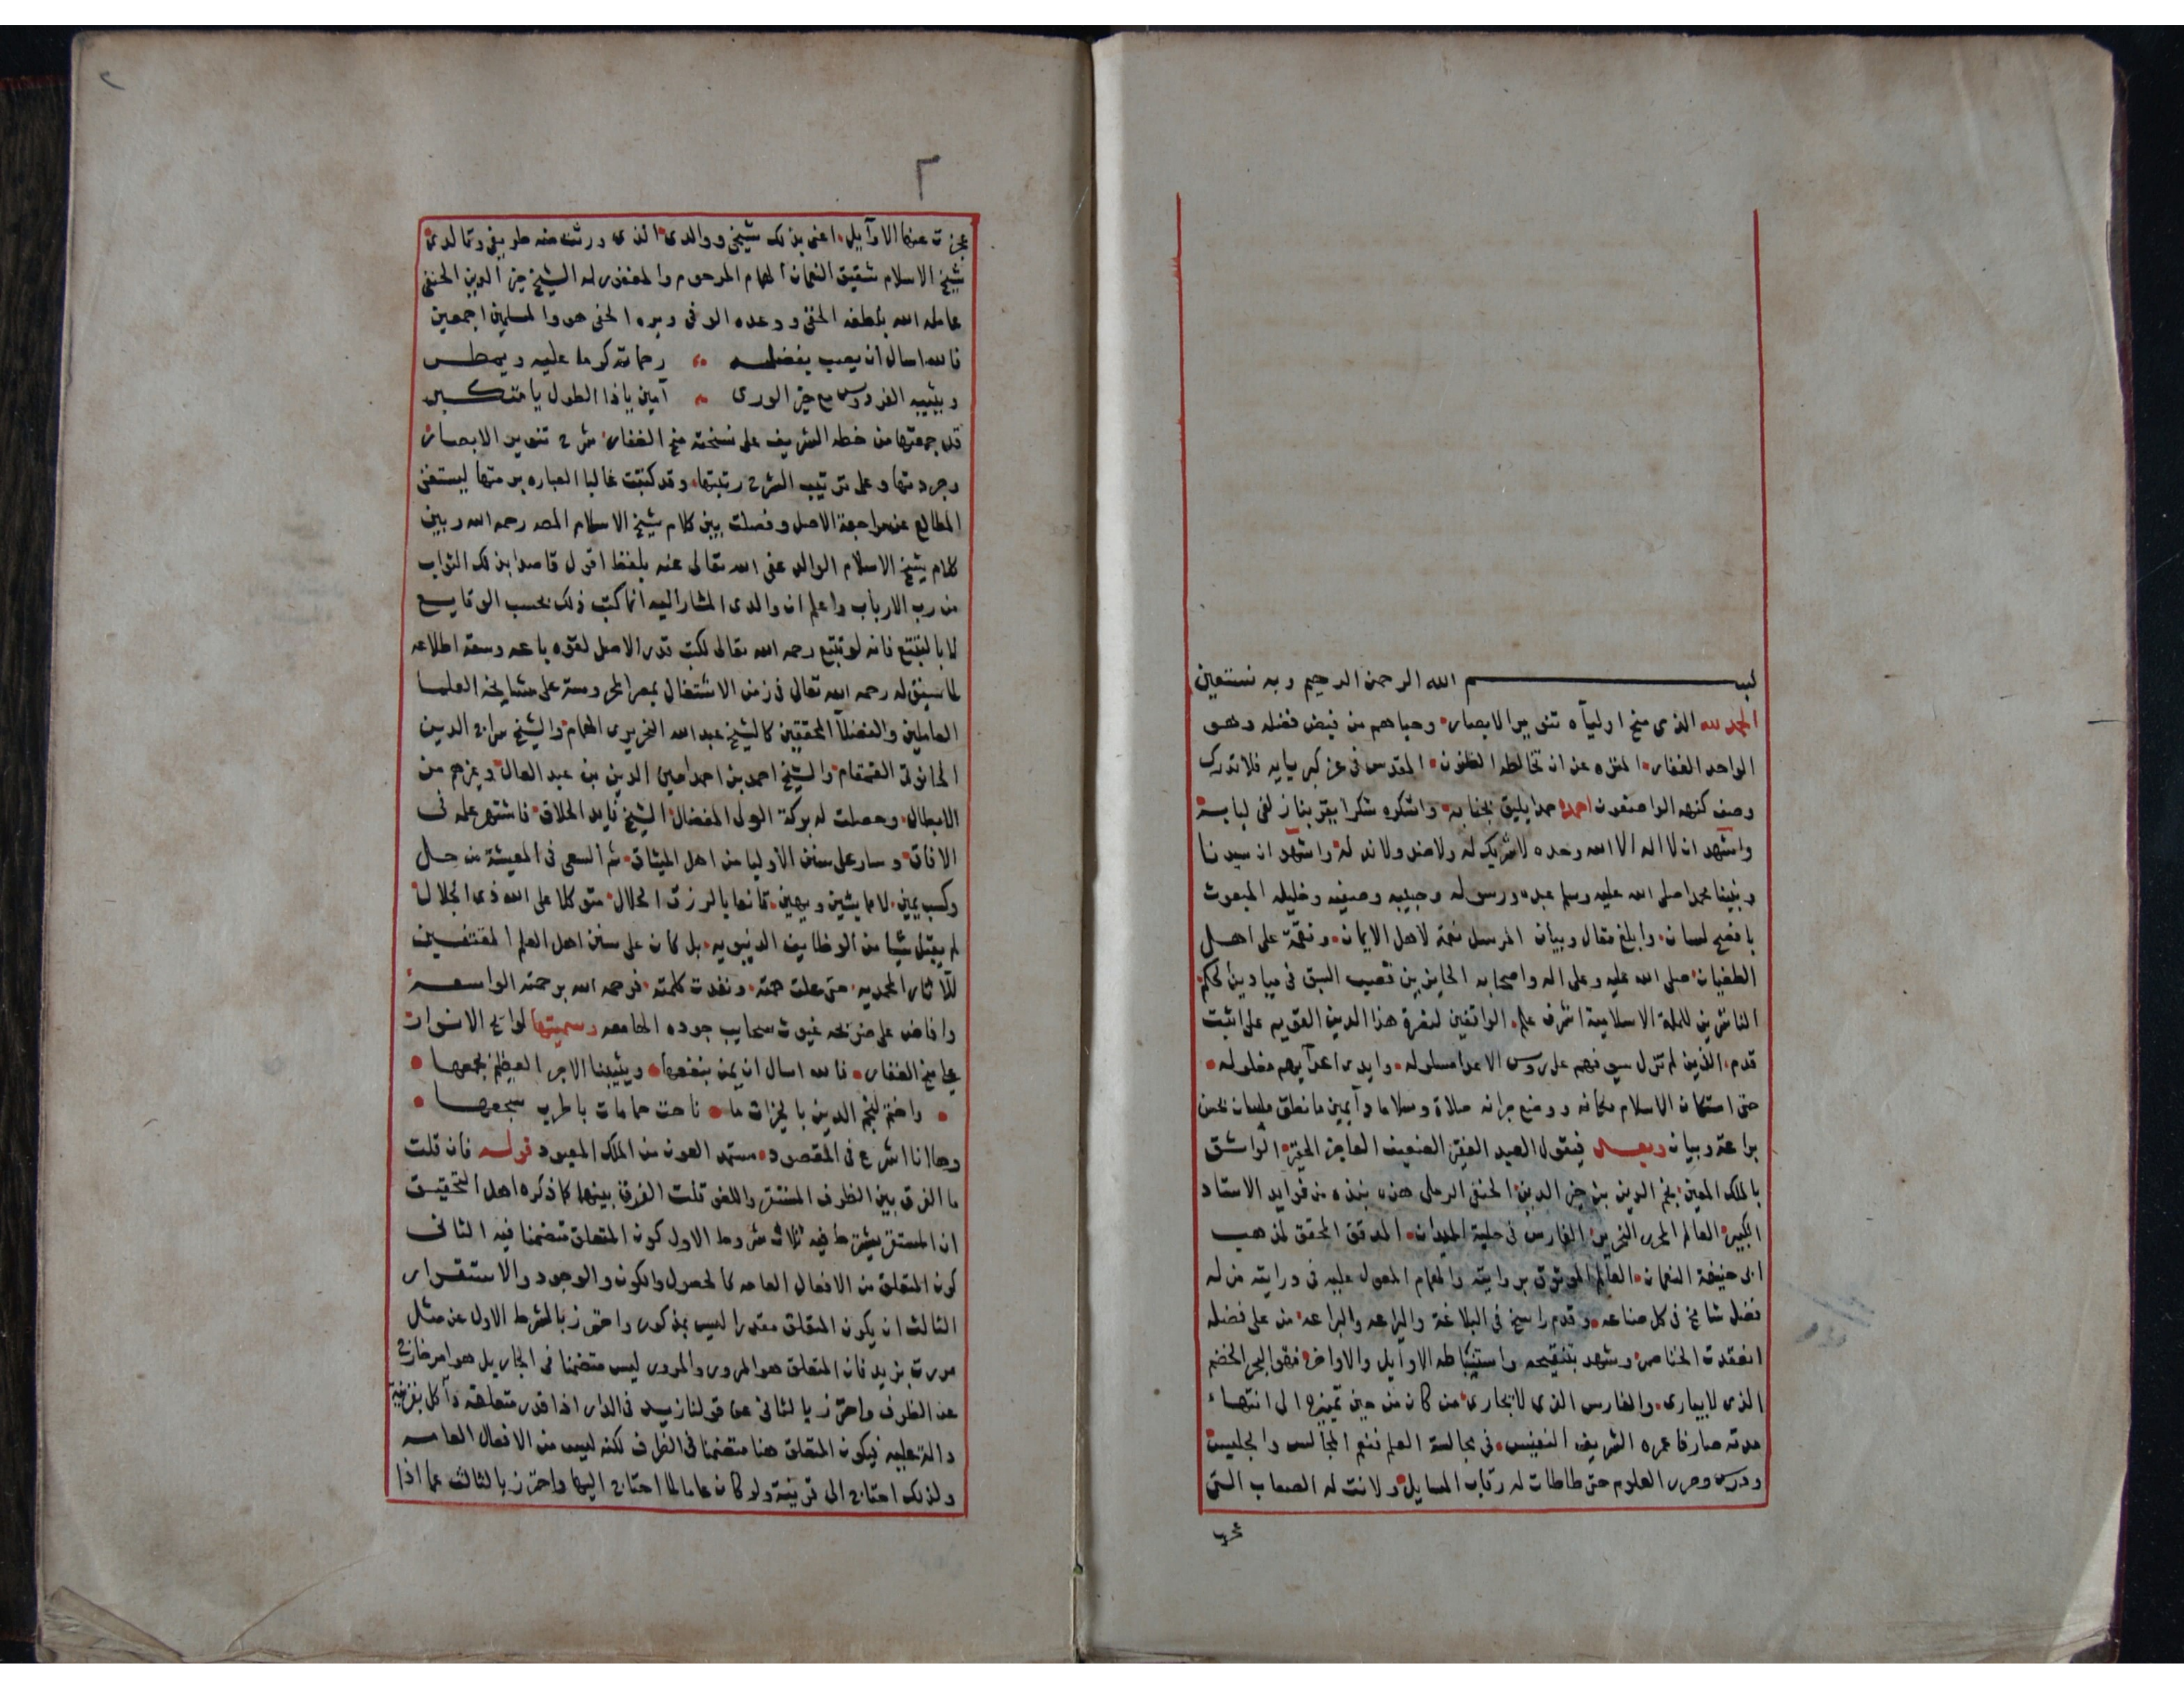 بســـــــــم الله الرحمن الرحيم وبه نستعين
الحمد لله الذى منح اوليآه تنوير الابصار وحباهم من فيض فضله وهو
الواحد الغفار المنزه عن ان تخالطه الظنون المقدس فى عز كبريايه فلا تدرك
وصف كنهه الواصفون احمده حمدا يليق بجنابه واشكره شكرا يقربنا زلفى لبابه
واشهد ان لا اله الا الله وحده لا شريك له ولا ضد ولا ند له واشهد ان سيدنا
ونبينا محمدا صلى الله عليه وسلم عبده ورسوله وحبيبه وصفيه وخليله المبعوث
بافصح لسان وابلغ مقال وبيان المرسل نعمة لاهل الايمان ونقمة على اهل
الطغيان صلى الله عليه وعلى اله واصحابه الحايزين قصب السبق فى ميادين الحكم
الناشرين للملة الاسلامية اشرف علم الواقفين لنصرة هذا الدين القويم على اثبت
قدم الذين لم تزل سيوفهم على روس الاعدا مسلوله وايدى اعدآيهم مغلوله
حتى استكان الاسلام مكانه ووضع جرانه صلاة وسلاما دآيمين ما نطق لسان بحسن
براعة وبيان وبعد فيقول العبد الفقير الضعيف العاجز الحقير الواثق
بالملك المعين نجم الدين بن خير الدين الحنفى الرملى هذه نبذه من فوايد الاستاد
الكبير العالم المحرر النحرير الفارس فى حلبة الميدان المدقق المحقق لمذهب
ابى حنيفة النعمان العالم الموثوق بروايته والهمام المعول عليه فى درايته من له
فضل شامخ فى كل صناعه وقدم راسخ فى البلاغة واليراعه والبراعه من على فضله
انعقدت الخناصر وشهد بتنقيحه واستنباطه الاوايل والاواخر فهو البحر الخضم
الذى لا يبارى والفارس الذى لا يجارى من كان من حين تمييزه الى انتهاء
مدته صارفا عمره الشريف النفيس فى مجالسة العلم فنعم المجالس والجليس
ودرس وحرر العلوم حتى طاطات له رقاب المسايل ولانت له الصعاب التى
عجزت عنها الاوآيل اعنى بذلك شيخى ووالدى الذى ورثت منه طريفى وتالدى
شيخ الاسلام شقيق النعمان الهمام المرحوم والمغفور له الشيخ خير الدين الحنفى
عامله الله بلطفه الخفى ووعده الوفى وبره الحفى هو والمسلمين اجمعين
فالله اسال ان يصب بفضله رحماته كرما عليه ويمطر
ويثيبه الفردوس مع خير الورى آمين ياذا الطول يا متكبر
قد جمعتها من خطه الشريف على نسخته منح الغفار شرح تنوير الابصار
وجردتها وعلى ترتيب الشرح رتبتها وقد كتبت غالبا العباره برمتها ليستغنى
المطالع عن مراجعة الاصل وفصلت بين كلام شيخ الاسلام المص رحمه الله وبين
كلام شيخ الاسلام الوالد عفى الله تعالى عنه بلفظ اقول قاصدا بذلك الثواب
من رب الارباب واعلم ان والدى المشار اليه انما كتب ذلك بحسب الوقايع
لا بالتتبع فانه لو تتبع رحمه الله تعالى لكتب قدر الاصل لقوه باعه وسعة اطلاعه
لما سبق له رحمه الله تعالى فى زمن الاشتغال بمصر المحروسة على مشايخه العلما
العاملين والفضلآ المحققين كالشيخ عبد الله النحريرى الهمام والشيخ سراج الدين
الحانوتى القمقام والشيخ احمد بن احمد امين الدين بن عبد العال وغيرهم من
الابطال وحصلت له بركة الولى المفضال الشيخ فايد الحلاق فاشتهر علمه فى
الافاق وسار على سنن الاوليا من اهل الميثاق ثم السعى فى المعيشة من حل
وكسب يمين لا ما يشين ويهين قانعا بالرزق الحلال متوكلا على الله ذى الجلال
لم يقبل شيا من الوظايف الدنيويه بل كان على سنن اهل العلم المقتفين
للآثار المحمديه حتى علت همته ونفذت كلمته فرحمه الله برحمته الواسعه
وافاض على ضريحه غيوث سحايب جوده الهامعه وسميتها لوايح الانوار
على منح الغفار فالله اسال ان يمن بنفعها ويثيبنا الاجر العظيم بجمعها
واختم لنجم الدين بالخيرات ما ناحت حمامات باطرب سجعها
وها انا اشرع فى المقصود مستمد العون من الملك المعبود قوله فان قلت
ما الفرق بين الظرف المستقر واللغو قلت الفرق بينهما كما ذكره اهل التحقيق
ان المستقر يشترط فيه ثلاث شروط الاول كون المتعلق متضمنا فيه الثانى
كون المتعلق من الافعال العامه كالحصول والكون والوجود والاستقرار
الثالث ان يكون المتعلق مقدرا ليس بمذكور واحترز بالشرط الاول عن مثل
مررت بزيد فان المتعلق هو المرور والمرور ليس متضمنا فى الجار بل هو امر خارج
عن الظرف واحترز بالثانى عن قولنا زيد فى الدار اذا قدر متعلقه وآكل بقرينة
دالة عليه فيكون المتعلق هنا متضمنا فى الظرف لكنه ليس من الافعال العامه
ولذلك احتاج الى قرينة ولو كان عاما لما احتاج اليها واحترز بالثالث عما اذا